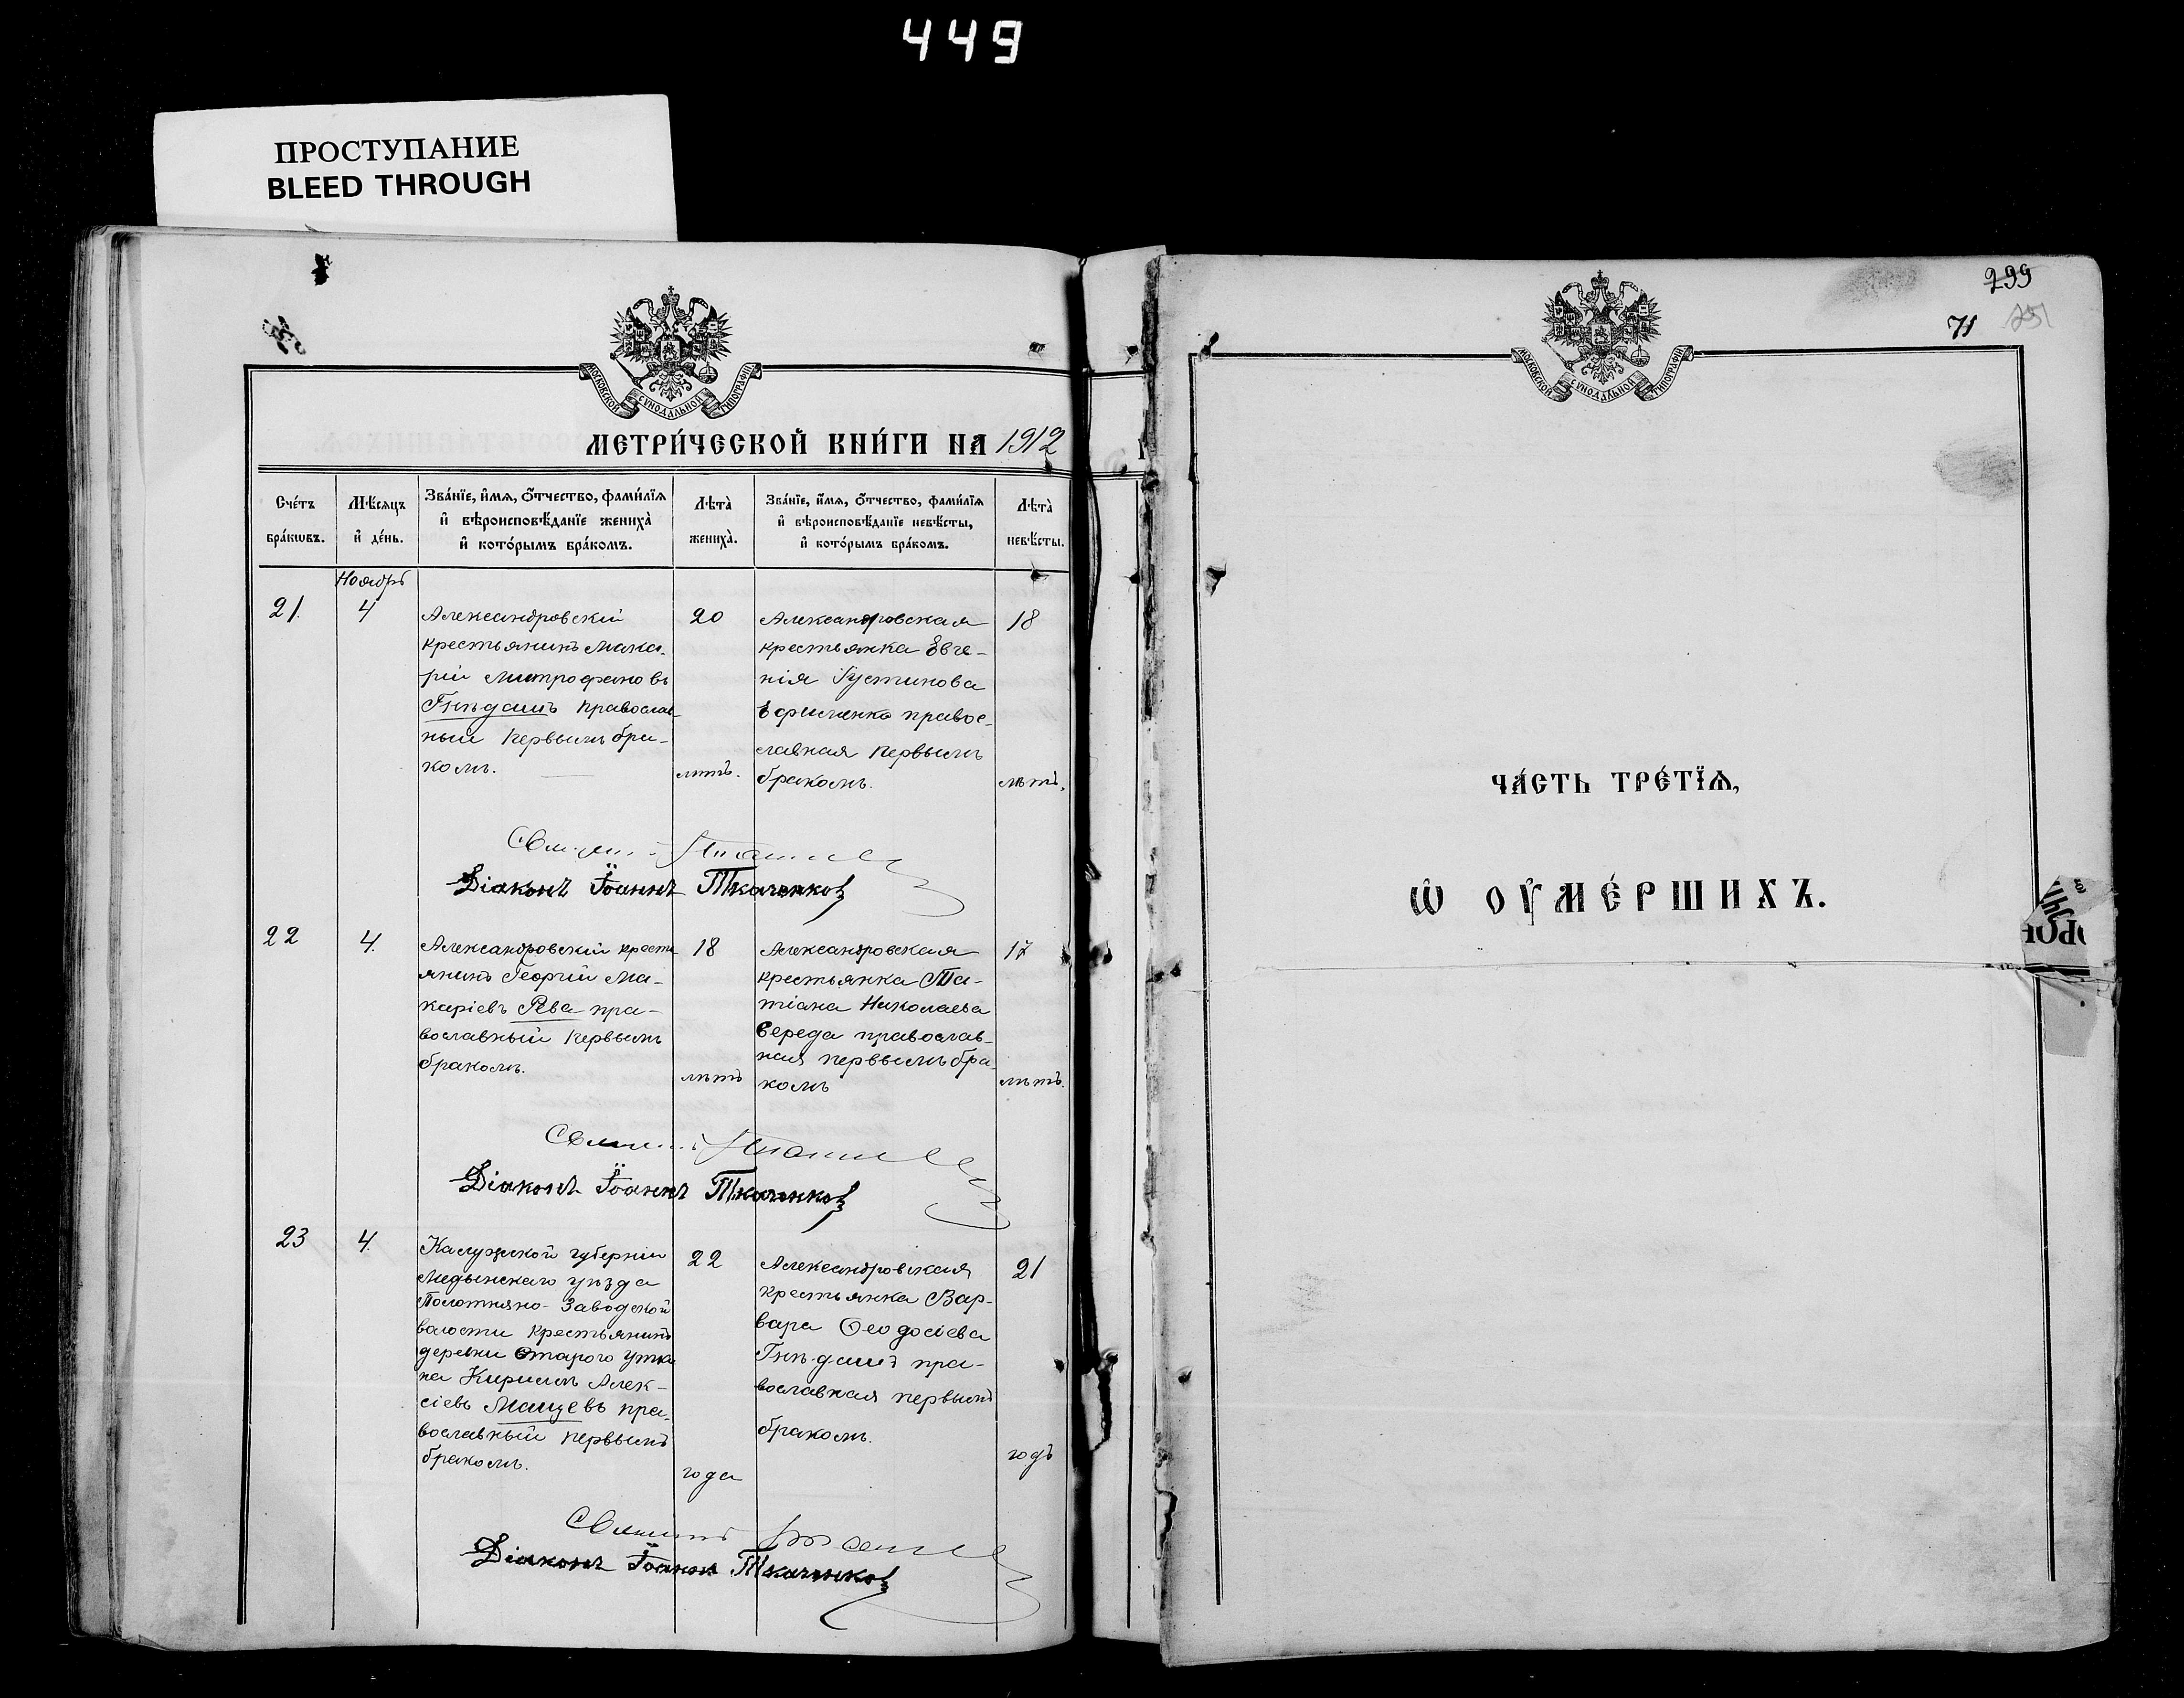 449
ПРОСТУПАНИЕ
BLEED THROUGH
МОСКОВСКОЙ СѴНОДАЛЬНОЙ ТИПОГРАФІИ
МЕТРИ́ЧЕСКОЙ КНИ́ГИ НА 1912
Сче́тъ бра́кωвъ.
Мѣ́сяцъ и҆ де́нь.
Зва́нїе, и҆́мѧ, ѻ҆́тчество, фами́лїѧ
и҆ вѣроисповѣ́данїе жениха̀
и҆ кото́рымъ бра́комъ.
Лѣта̀ жениха̀.
Зва́нїе, и҆́мѧ, ѻ҆́тчество, фами́лїѧ
и҆ вѣроисповѣ́данїе невѣ́сты,
и҆ кото́рымъ бра́комъ.
Лѣта̀ невѣ́сты.
Ноябрь
21.
4
Александровскій
крестьянинъ Мака-
рій Митрофановъ
Гнѣдашъ православ-
ный первымъ бра-
комъ.
20
лѣтъ.
Александровская
крестьянка Евге-
нія Іустинова
Ефименко правос-
лавная первымъ
бракомъ.
18
лѣтъ.
Діаконъ Іоаннъ Ткаченко
22
4.
Александровскій кресть
янинъ Георгій Ма-
каріевъ Рева пра-
вославный первымъ
бракомъ.
18
лѣтъ
Александровская
крестьянка Та-
тіана Николаева
Середа православ-
ная первымъ бра
комъ
17
лѣтъ.
Діаконъ Іоаннъ Ткаченко
23
4.
Калужской губерніи
Медынскаго уѣзда
Полотняно-Заводской
волости крестьянинъ
деревни Старого Утки
на Кириллъ Алек-
сіевъ Мащевъ пра-
вославный первымъ
бракомъ.
22
года
Александровская
крестьянка Вар-
вара Ѳеодосіева
Гнѣдашъ пра-
вославная первымъ
бракомъ.
21
годъ
Діаконъ Іоаннъ Ткаченко
299
71
МОСКОВСКОЙ СѴНОДАЛЬНОЙ ТИПОГРАФІИ
ЧА́СТЬ ТРЕ́ТЇѦ,
Ѡ҆ ОУ҆МЕ́РШИХЪ.